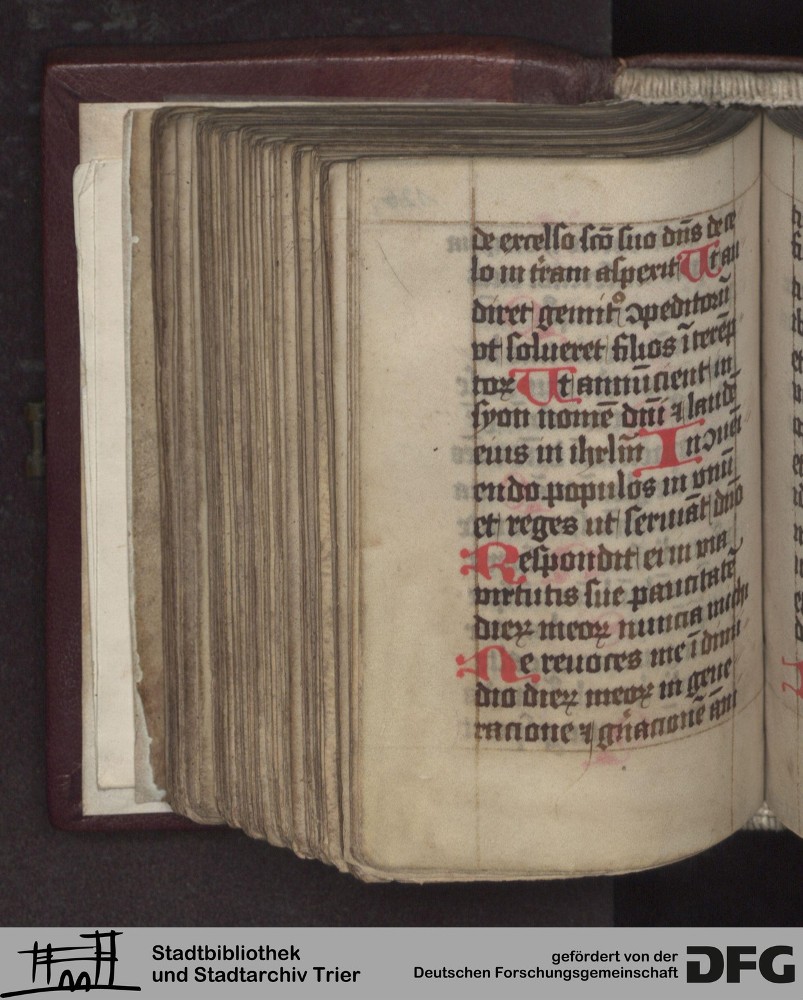 de excelso scō suo dn̄s de ce
lo in t̄ram aspexit Vt au
diret gemitꝰ ꝯpeditoꝝ
vt solueret filios īterēp
toꝝ Vt annūcient in
syon nomē dn̄i ⁊ laudē
eius in ihrlm̄ In ꝯueī
endo populos in vnū
et reges ut seruiāt dn̄o
Respondit ei in via
virtutis sue paucitatē
dieꝝ meoꝝ nuncia michi
Ne reuoces me ī dimi
dio dieꝝ meoꝝ in gene
racione ⁊ gn̄acionē
Stadtbibliothek
und Stadtarchiv Trier
gefördert von der
Deutschen Forschungsgemeinschaft
DFG